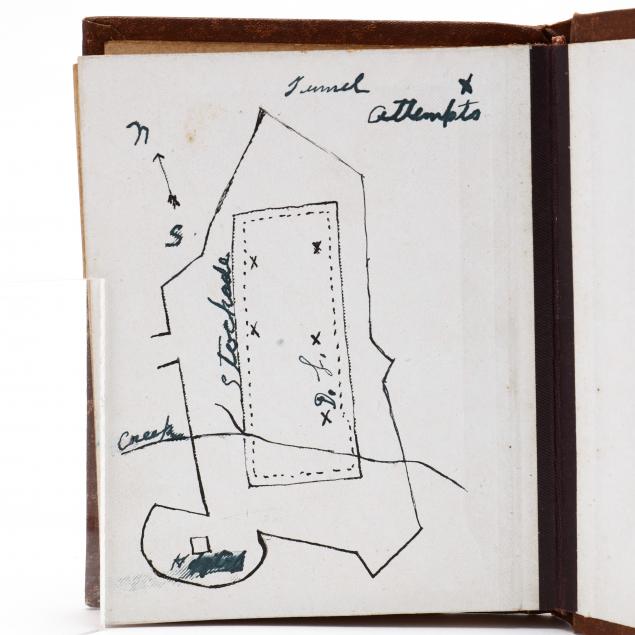 Tunnel x
attempts
N
S
Stockade
D. L.
Creek